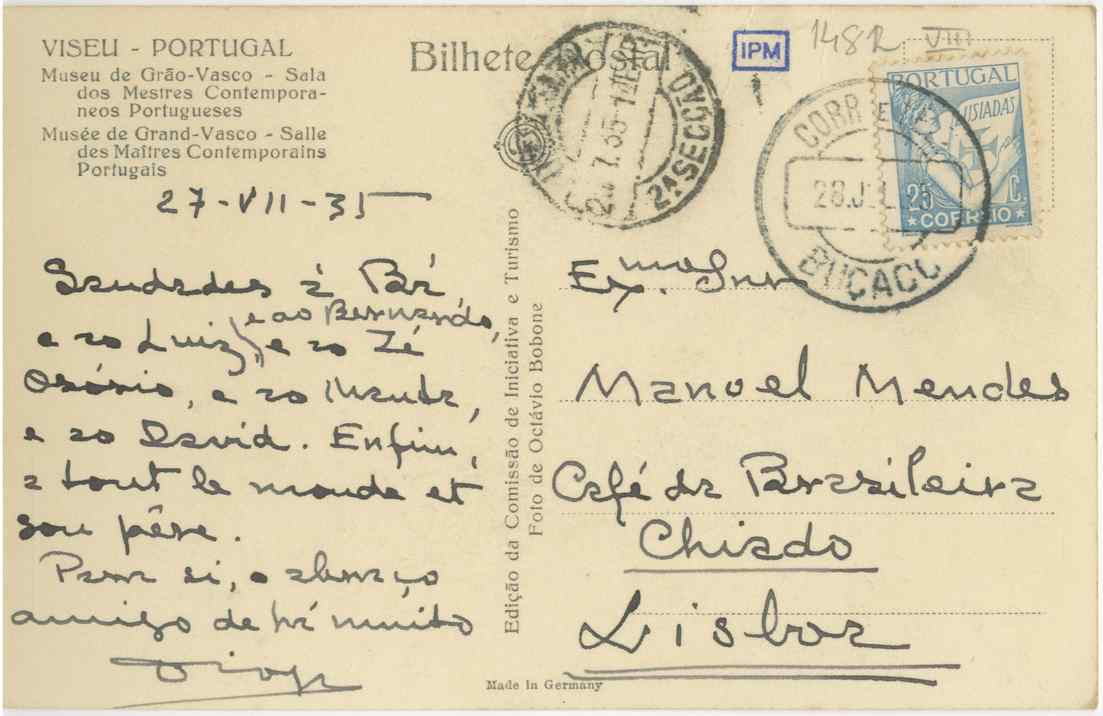 VISEU - PORTUGAL
Museu de Grão-Vasco - Sala
dos Mestres Contempora-
neos Portugueses
Musée de Grand-Vasco - Salle
des Maîtres Contemporains
Portugais
Bilhete Postal
IPM
1482
VIII
2A SECÇÃO
CORREIO
28.JUL.35
BUÇACO
PORTUGAL
LUSIADAS
25 C.
CORREIO
27-VII-35
Saudades à Bá,
e ao Luiz, e ao Bernardo,
e ao Zé
Osório, e ao
e ao David. Enfim,
a tout le monde et
son père.
Para si, o abraço
amigo de há muito
Edição da Comissão de Iniciativa e Turismo
Foto de Octávio Bobone
Ex.mo Snr
Manoel Mendes
Café da Brasileira
Chiado
Lisboa
Made in Germany